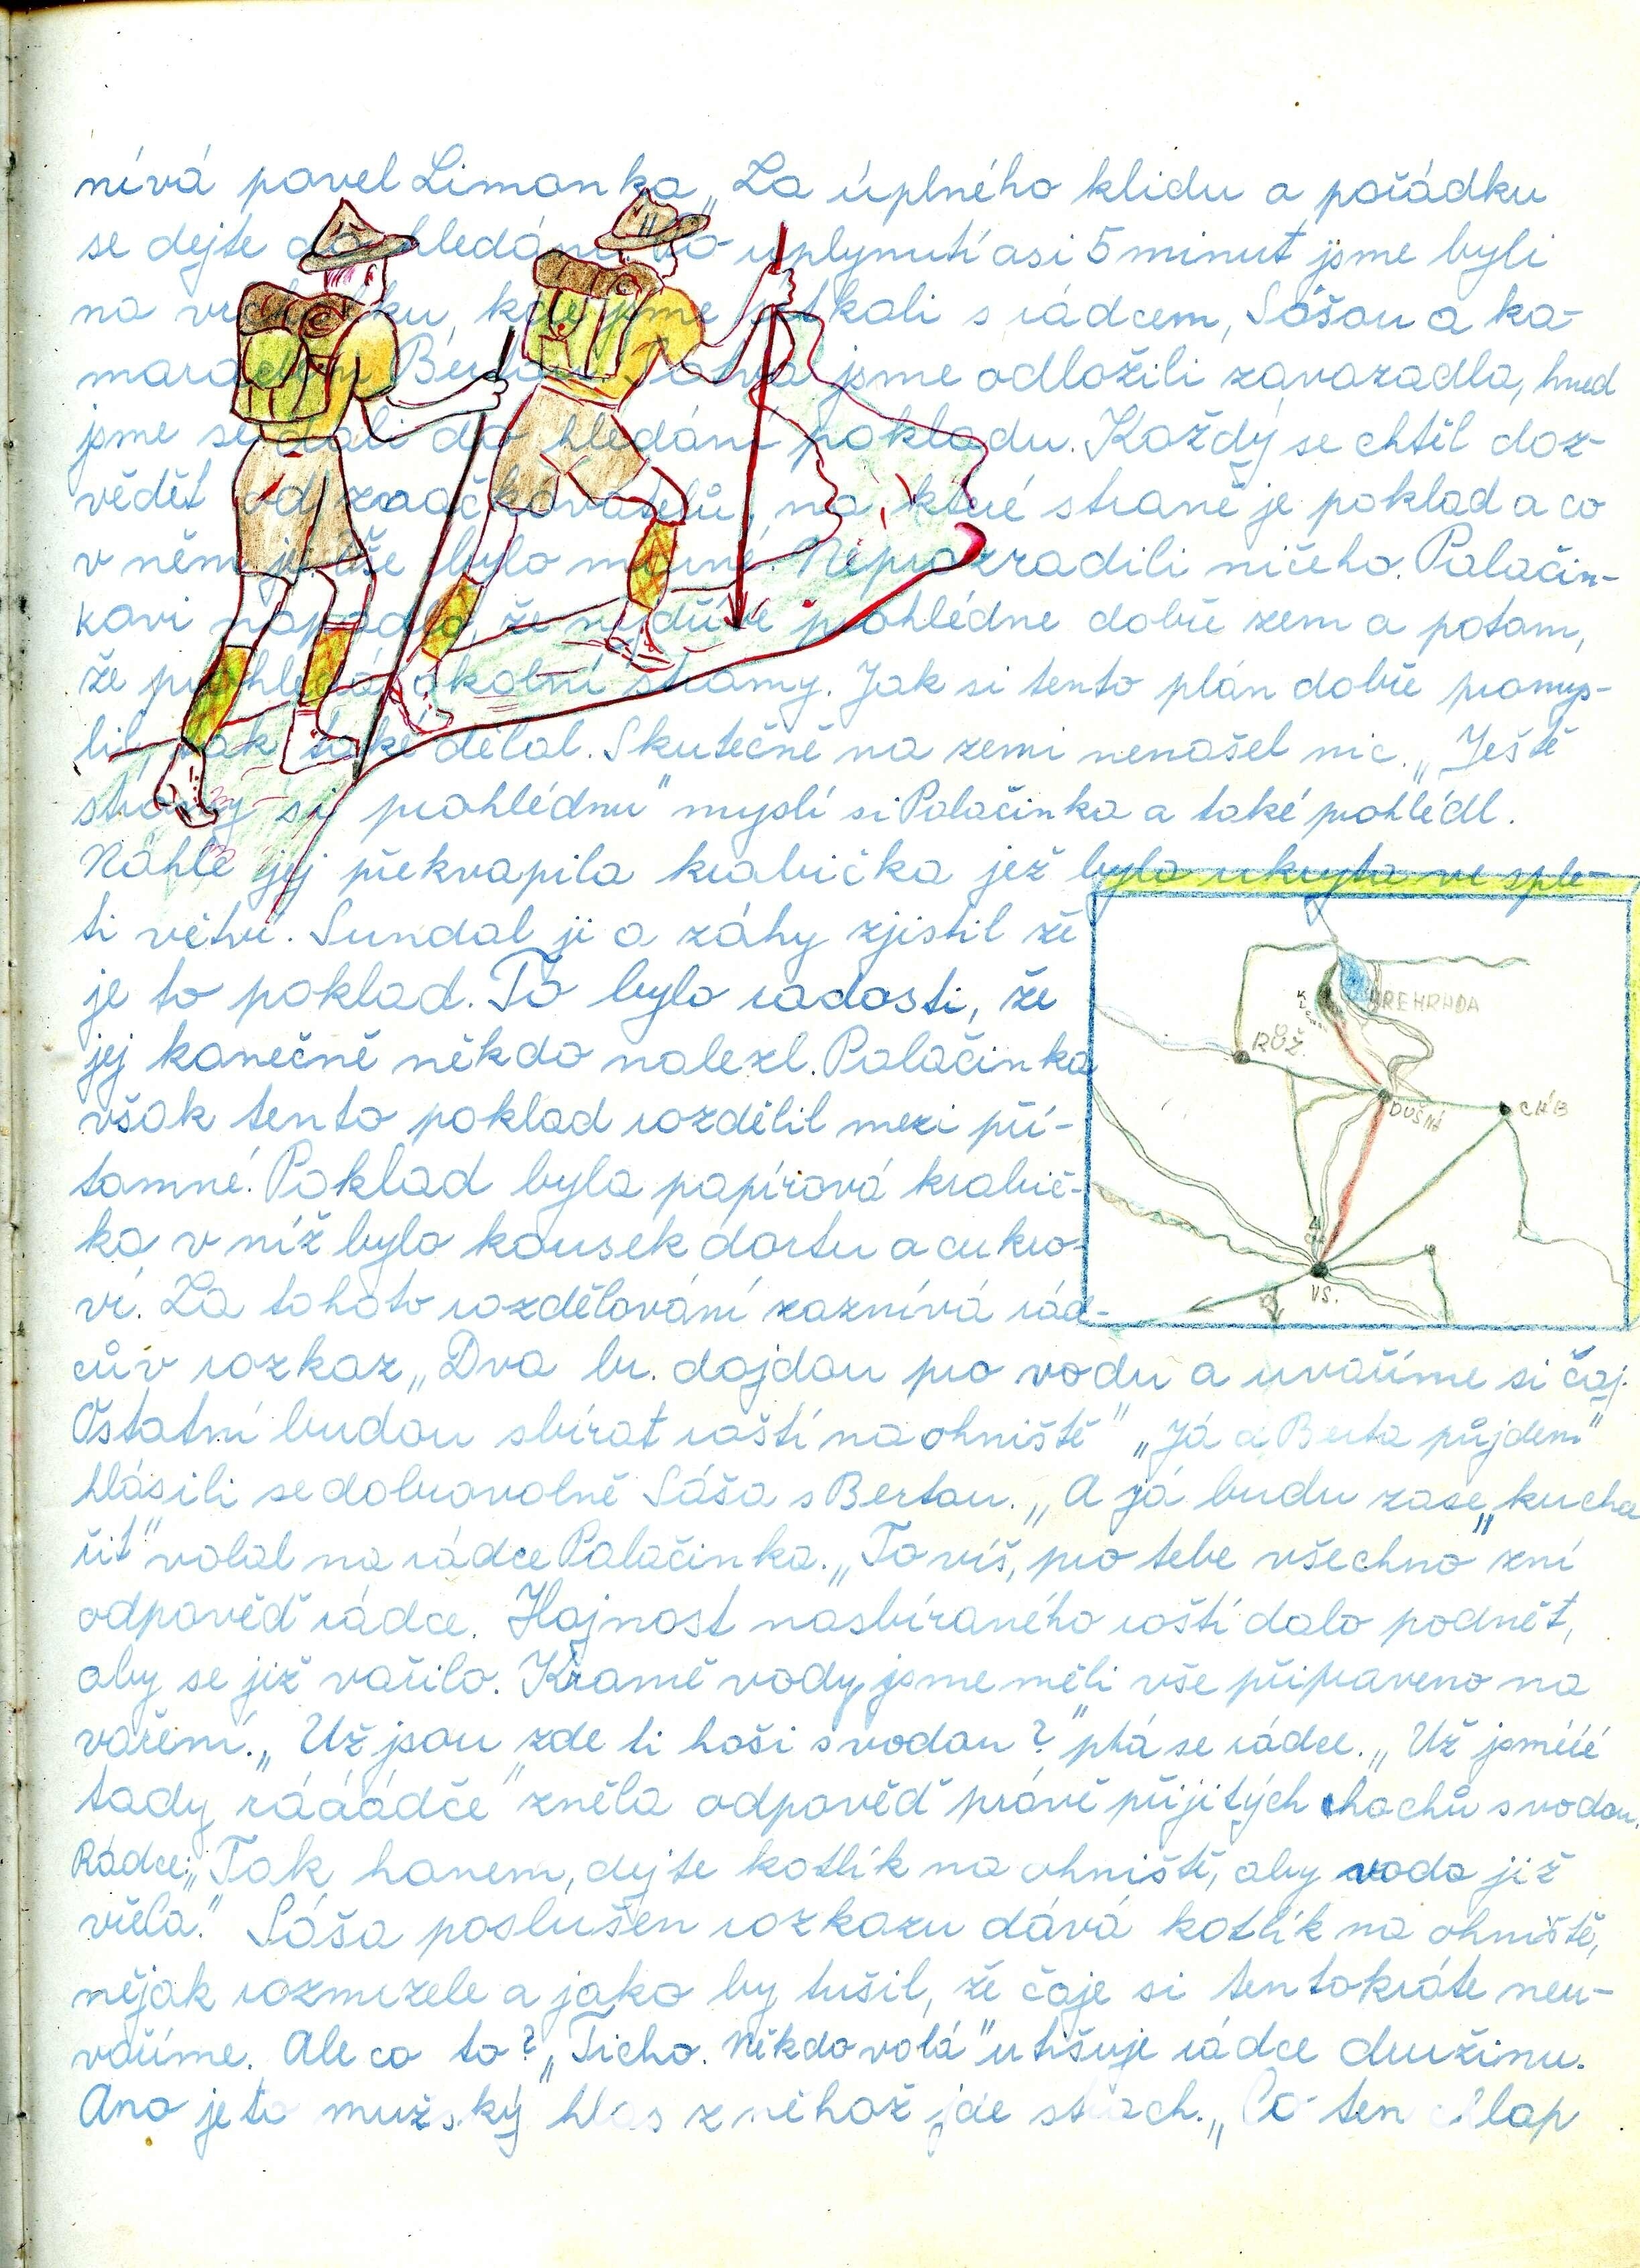 nívá povel Limonka „Za úplného klidu a pořádku
se dejte do hledání" Po uplynutí asi 5 minut jsme byli
na vrcholku, kde jsme setkali s rádcem, Sášou a ka-
marádem Bertou. Sotva jsme odložili zavazadla, hned
jsme se dali do hledání pokladu. Každý se chtěl doz-
vědět od značkovatelů, na které straně je poklad a co
v něm je. Vše bylo marné. Neprozradili ničeho. Palačin-
kovi napadlo, že nejdříve prohlédne dobře zem a potom,
že prohledá okolní stromy. Jak si tento plán dobře promys-
lil, tak také dělal. Skutečně na zemi nenašel nic. „Ještě
stromy si prohlédnu" myslí si Palačinka a také prohlédl.
Náhle jej překvapila krabička jež byla ukryta ve sple-
ti větví. Sundal ji a záhy zjistil že
je to poklad. To bylo radosti, že
jej konečně někdo nalezl. Palačinka
však tento poklad rozdělil mezi pří-
tomné. Poklad byla papírová krabič-
ka v níž bylo kousek dortu a cukro-
ví. Za tohoto rozdělování zaznívá rád-
cův rozkaz „Dva br. dojdou pro vodu a uvaříme si čaj.
Ostatní budou sbírat roští na ohniště" „Já a Berta půjdem"
hlásili se dobrovolně Sáša s Bertou. „A já budu zase „kucha
řit" volal na rádce Palačinka. „To víš, pro tebe všechno" zní
odpověď rádce. Hojnost nasbíraného roští dalo podnět,
aby se již vařilo. Kromě vody jsme měli vše připraveno na
vaření. „Už jsou zde ti hoši s vodou?" ptá se rádce. „Už jsmééé
tady rááádče" zněla odpověď právě přijitých hochů s vodou.
Rádce: „Tak honem, dejte kotlík na ohniště, aby voda již
vřela." Sáša poslušen rozkazu dává kotlík na ohniště,
nějak rozmrzele a jako by tušil, že čaje si tentokráte neu-
vaříme. Ale co to? „Ticho. Někdo volá" utišuje rádce družinu.
Ano je to mužský hlas z něhož jde strach. „Co ten chlap
PŘEHRADA
RŮŽ.
DUŠNÁ
CHŘIB
VS.